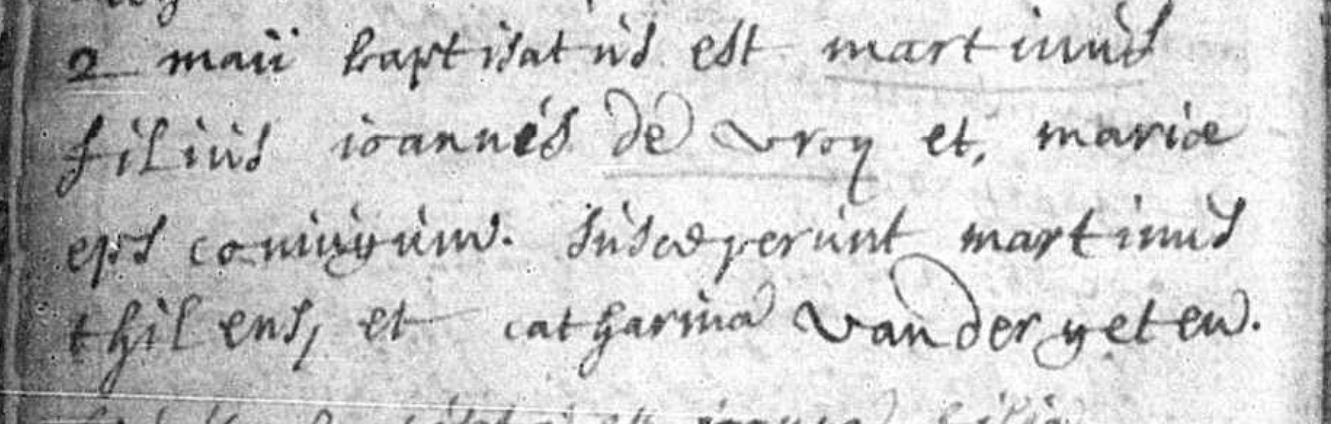 2 maii baptisatus est martinus
filius ioannis de vroy et, mariæ
eps coniugum. Suscæperunt martinus
thilens, et catharina vander yeten.